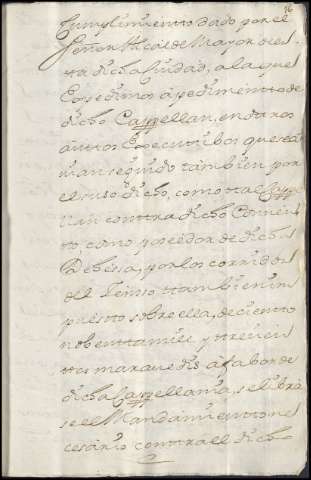 76
Cumplimiento dado por el
señor Alcalde Mayor de es-
ta dicha Ciudad, a la que
Expedimos a pedimentto de
dicho Cappellan, en daros
auttos Executibos que se a
uian seguido tambien por
el suso dicho, como ttal Cappe
llan conttra dicho Conuen
tto como poseedor de dicha
Dehesa, por los corridos
del Zenso ttambien im
puestto sobre ella, de ciento
nobentta mill y ttreciett
ttos marauedis a fabor de
dicha Cappellania, se libra
se el Mandamientto ne
cesario conttra el dicho